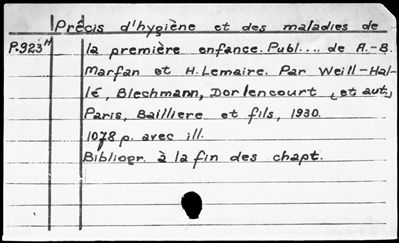 Précis d'hygiène et des maladies de
P.923H la première enfance. Publ.... de A.-B.
Marfan et H. Lemaire. Par Weill-Hal-
lé, Blechmann, Dorlencourt [et aut.]
Paris, Bailliere et fils, 1930.
1078 p. avec ill.
Bibliogr. à la fin des chapt.